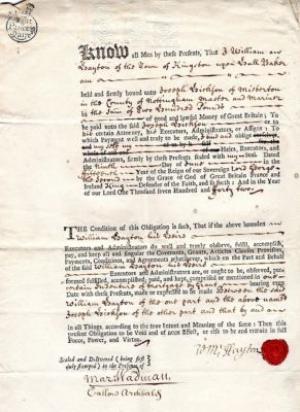 KNOW all Men by these Presents, That I William
Layton of the Town of Kingston upon Hull Baker
am
held and firmly bound unto Joseph Dickson of Misterton
in the County of Nottingham Master and Mariner
in the Sum of Two Hundred Pounds
of good and lawful Money of Great Britain; To
be paid unto the said Joseph Dickson or to
his certain Attorney, his Executors, Administrators, or Assigns: To
which Payment well and truly to be made, I
my Heirs, Executors, and
Administrators, firmly by these Presents. Sealed with my Seal. Dated
the Ninth Day of in the
Year of the Reign of our Sovereign Lord George
the Second by the Grace of God of Great Britain France and
Ireland King Defender of the Faith, and so forth: And in the Year
of our Lord One Thousand Seven Hundred and forty two
THE Condition of this Obligation is such, That if the above bounden
William Layton his Heirs
Executors and Administrators do well and truly observe, fulfil, accomplish,
pay, and keep all and singular the Covenants, Grants, Articles, Clauses, Provisoes,
Payments, Conditions, and Agreements whatsoever, which on the Part and Behalf
of the said William Layton his Heirs
Executors and Administrators, are, or ought to be, observed, performed
fulfilled, accomplished, paid, and kept, comprised or mentioned in
Indenture of Mortgage bearing
Date with these Presents, made or expressed to be made Between the
William Layton of the one part and the above named
Joseph Dickson of the other part and that by and
in all Things, according to the true Intent and Meaning of the same: Then this
present Obligation to be Void and of none Effect, or else to be and remain in full
Force, Power, and Virtue.
Wm Layton
Sealed and Delivered (being first
duly stampt) in the Presence of